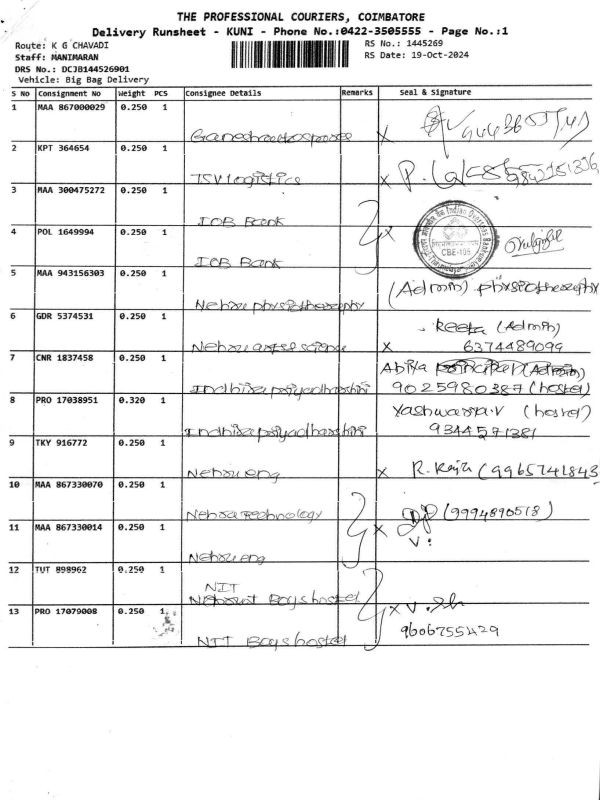 THE PROFESSIONAL COURIERS, COIMBATORE
Delivery Runsheet - KUNI - Phone No.:0422-3505555 - Page No.:1
Route: K G CHAVADI
RS No.: 1445269
Staff: MANIMARAN
RS Date: 19-Oct-2024
DRS No.: DCJB144526901
Vehicle: Big Bag Delivery
S No Consignment No Weight PCS Consignee Details Remarks Seal & Signature
1 MAA 867000029 0.250 1
2 KPT 364654 0.250 1 TSV logistics x P.
3 MAA 300475272 0.250 1 IOB Bank
4 POL 1649994 0.250 1 IOB Bank x CBE-105
5 MAA 943156303 0.250 1 Nehru physiotheraphy (Admin) physiotheraphy
6 GDR 5374531 0.250 1 Nehru arts & science x Reeta (Admin)
6374489099
7 CNR 1837458 0.250 1 Indhira priyadharshini Abiya (Admin)
9025980387 (hostel)
8 PRO 17038951 0.320 1 Indhira priyadharshini (hostel)
9344571381
9 TKY 916772 0.250 1 Nehru eng x R. Raja (9965741843
10 MAA 867330070 0.250 1 Nehru Technology x (9994890518)
11 MAA 867330014 0.250 1 Nehru eng
12 TUT 898962 0.250 1 NIT Boys hostel x
13 PRO 17079008 0.250 1 NIT Boys hostel 9606755429